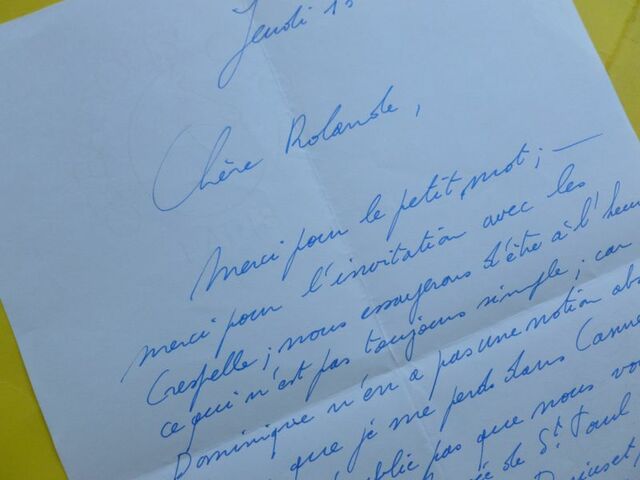 Jeudi 15
Chère Rolande,
Merci pour le petit mot ; —
merci pour l'invitation avec les
Crespelle ; nous essayerons d'être à l'heur
ce qui n'est pas toujours simple ; car
Dominique n'en a pas une notion abs
que je me perds dans Canne
pas que nous vou
de St Paul